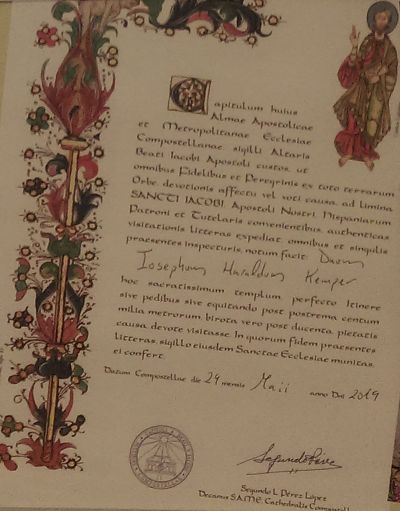 Capitulum huius
Almae Apostolicae
et Metropolitanae Ecclesiae
Compostellanae sigilli Altaris
Beati Iacobi Apostoli custos, ut
omnibus Fidelibus et Peregrinis ex toto terrarum
Orbe, devotionis affectu vel voti causa, ad limina
SANCTI IACOBI, Apostoli Nostri, Hispaniarum
Patroni et Tutelaris convenientibus, authenticas
visitationis litteras expediat, omnibus et singulis
praesentes inspecturis, notum facit: Dnum
Iosephum Haraldum Kemper
hoc sacratissimum templum, perfecto Itinere
sive pedibus sive equitando post postrema centum
milia metrorum, birota vero post ducenta, pietatis
causa, devote visitasse. In quorum fidem praesentes
litteras, sigillo eiusdem Sanctae Ecclesiae munitas,
ei confert.
Datum Compostellae die 24 mensis Maii anno Dni 2019
Segundo L. Pérez López
Decanus S.A.M.E. Cathedralis